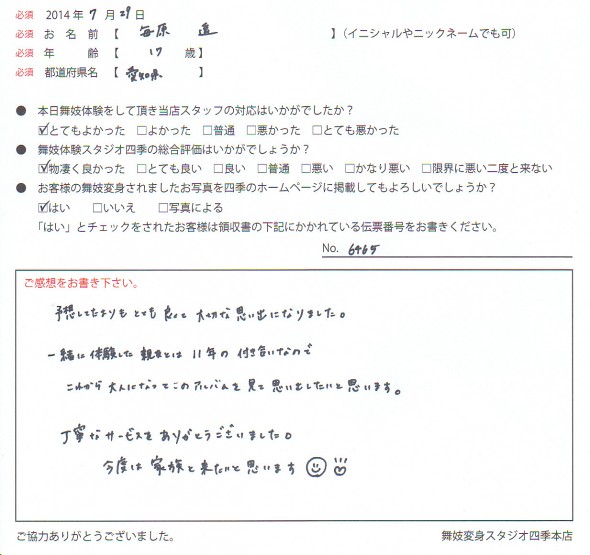 必須 2014年 7月 29日
必須 お名前【 毎原 遥 】(イニシャルやニックネームでも可)
必須 年齢【 17 歳】
必須 都道府県名【 愛知県 】
● 本日舞妓体験をして頂き当店スタッフの対応はいかがでしたか?
☑とてもよかった □よかった □普通 □悪かった □とても悪かった
● 舞妓体験スタジオ四季の総合評価はいかがでしょうか?
☑物凄く良かった □とても良い □良い □普通 □悪い □かなり悪い □限界に悪い二度と来ない
● お客様の舞妓変身されましたお写真を四季のホームページに掲載してもよろしいでしょうか?
☑はい □いいえ □写真による
「はい」とチェックをされたお客様は領収書の下記にかかれている伝票番号をお書きください。
No. 6465
ご感想をお書き下さい。
予想してたよりもとても良くて大切な思い出になりました。
一緒に体験した親友とは11年の付き合いなので
これから大人になってこのアルバムを見て思い出したいと思います。
丁寧なサービスをありがとうございました。
今度は家族と来たいと思います
ご協力ありがとうございました。
舞妓変身スタジオ四季本店